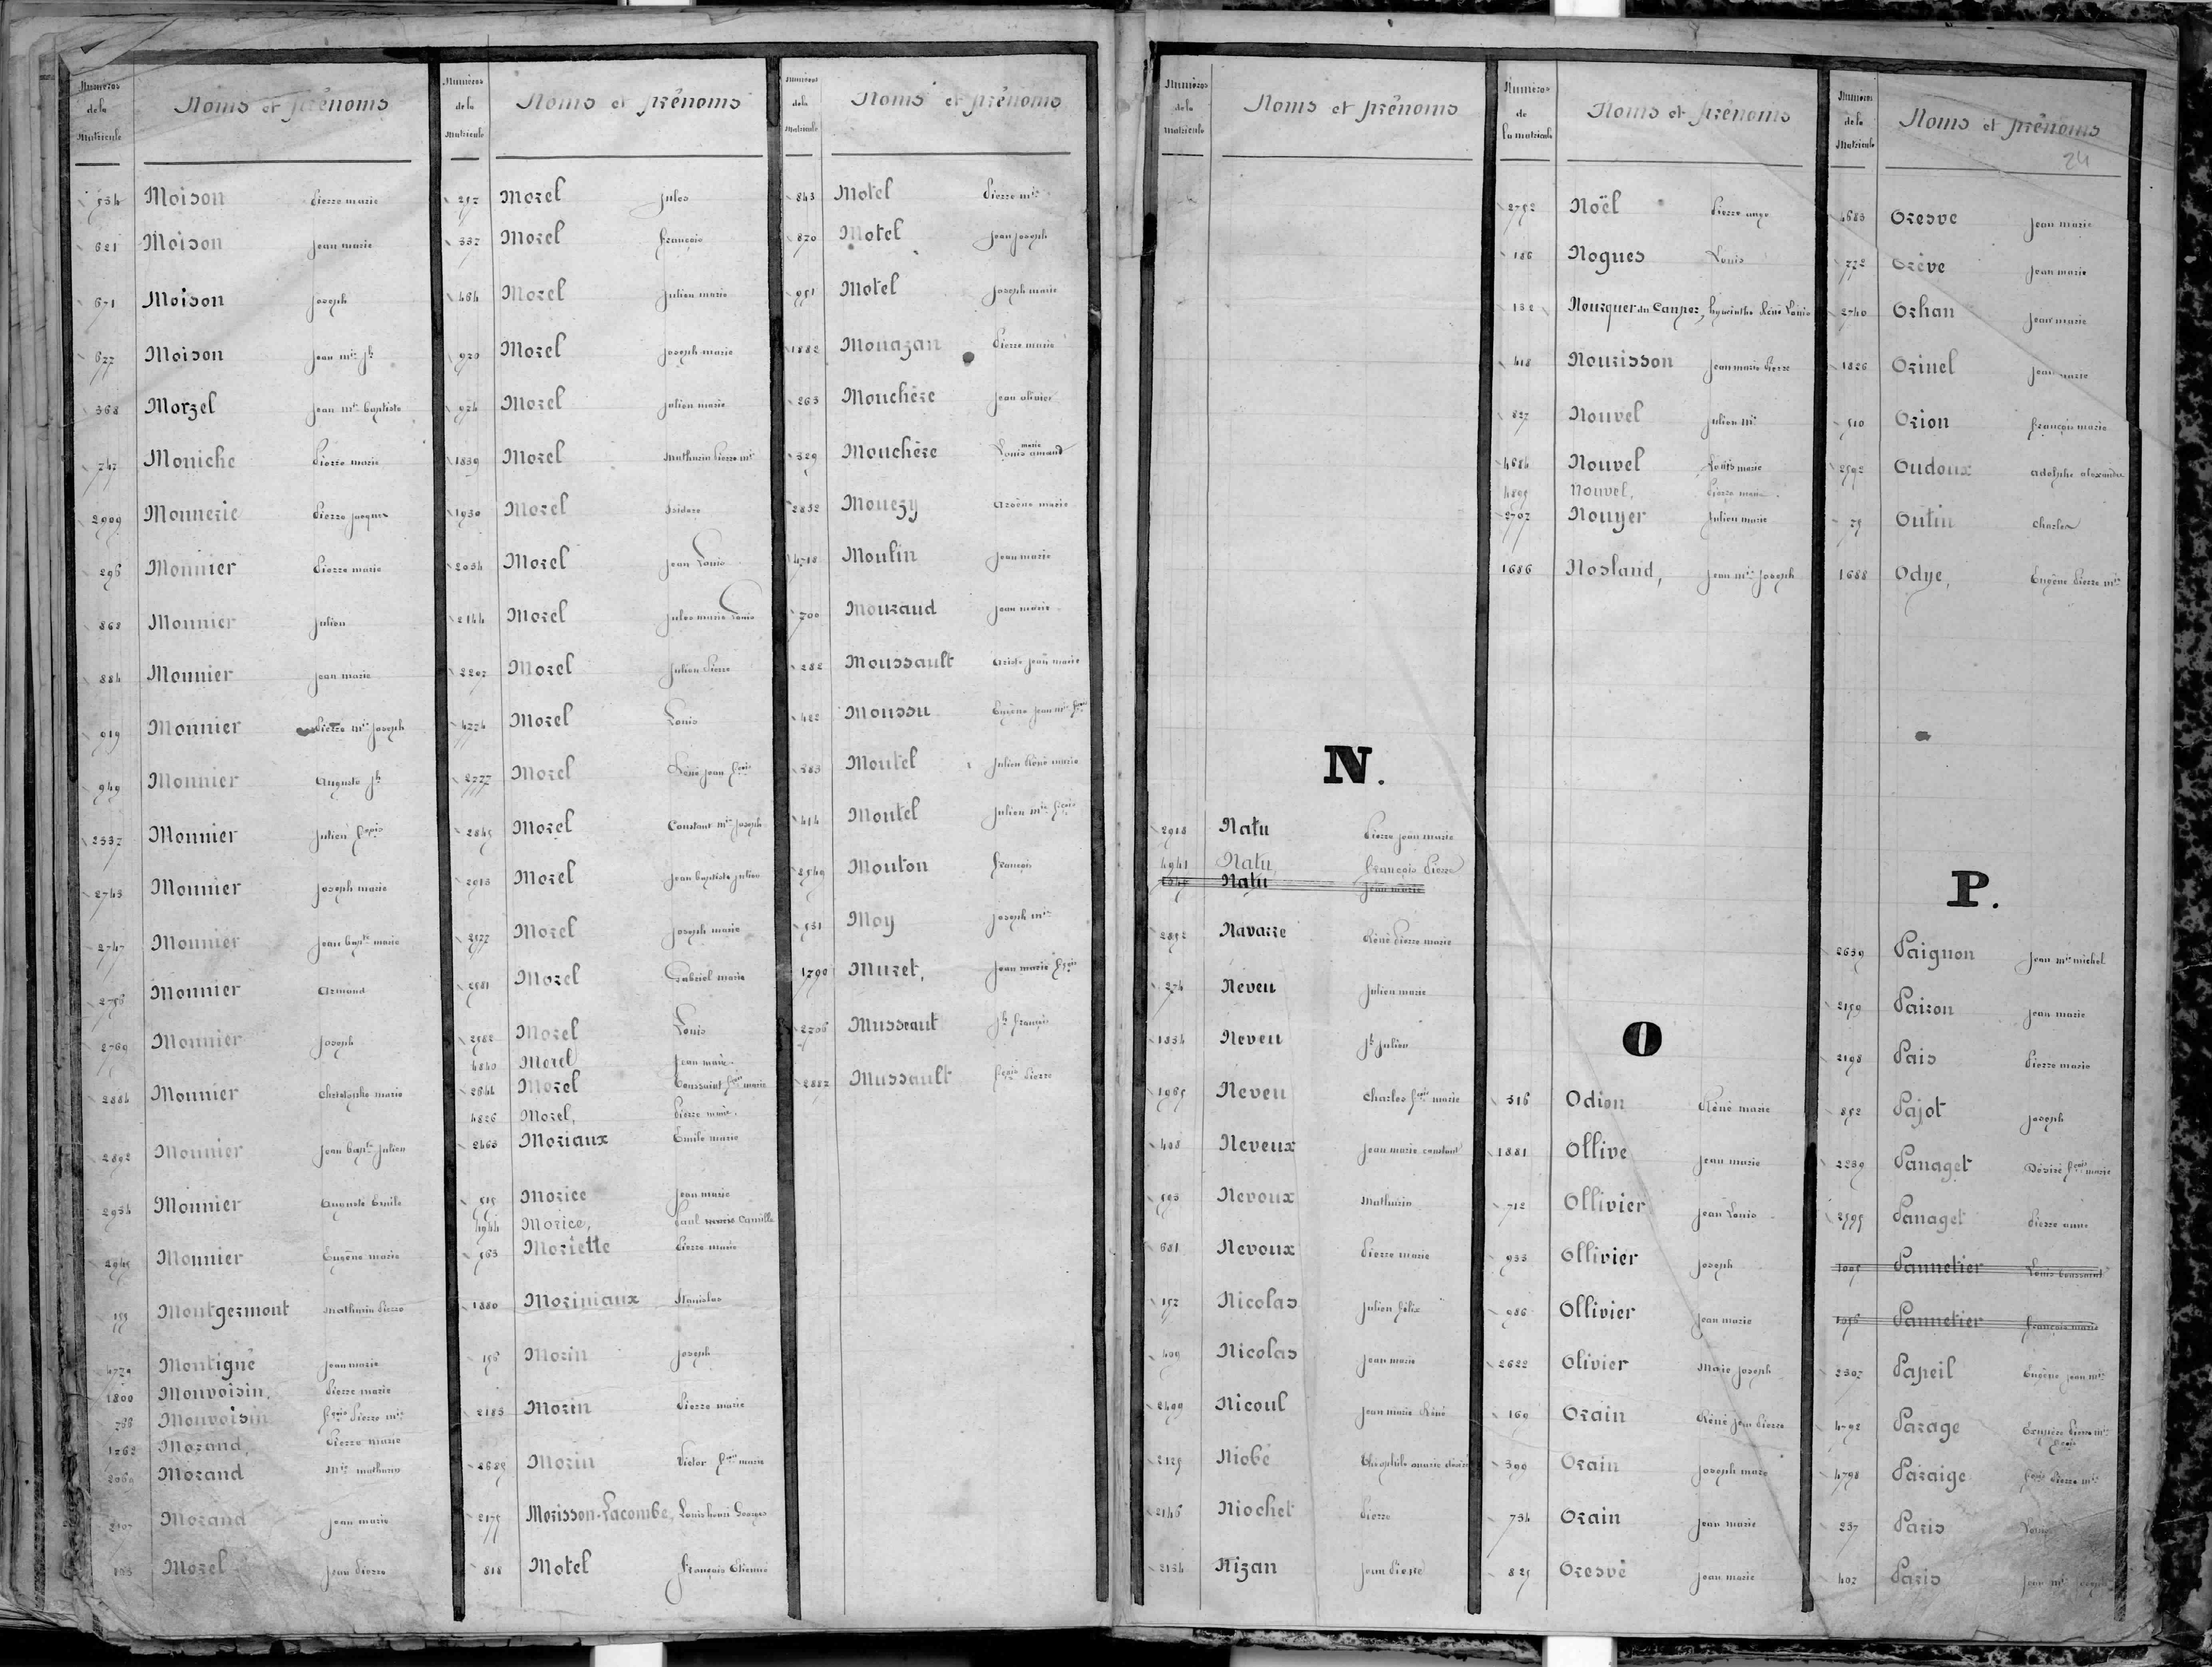 Numéros de la Matricule
Noms et prénoms
534 Moison Pierre marie
621 Moison Jean marie
671 Moison Joseph
677 Moison Jean mie Jh
368 Morzel Jean mie baptiste
747 Moniche Pierre marie
2909 Monnerie Pierre Jacques
296 Monnier Pierre marie
868 Monnier Julien
884 Monnier Jean marie
919 Monnier Pierre mie Joseph
949 Monnier Auguste Jh
2337 Monnier Julien fçois
2743 Monnier Joseph marie
2747 Monnier Jean bapte marie
2756 Monnier Armand
2769 Monnier Joseph
2884 Monnier Christophe marie
2892 Monnier Jean bapte Julien
2934 Monnier Auguste Emile
2945 Monnier Eugène marie
155 Montgermont Mathurin Pierre
4729 Montigné Jean marie
1800 Monvoisin, Pierre marie
766 Monvoisin fçois Pierre mie
1762 Morand, Pierre marie
Morand Mie mathurin
2107 Morand Jean marie
Morel Jean Pierre
Numéros de la Matricule
Noms et prénoms
217 Morel Jules
337 Morel François
464 Morel Julien marie
920 Morel Joseph marie
924 Morel Julien marie
1839 Morel Mathurin Pierre mie
1930 Morel Isidore
2034 Morel Jean Louis
2144 Morel Jules marie Louis
2207 Morel Julien Pierre
4274 Morel Louis
2777 Morel Réné Jean fçois
2845 Morel Constant mie Joseph
2913 Morel Jean baptiste Julien
2577 Morel Joseph marie
2581 Morel Gabriel marie
2582 Morel Louis
4840 Morel Jean marie
2644 Morel Toussaint fçois marie
4826 Morel, Pierre marie
2463 Moriaux Emile marie
515 Morice Jean marie
4944 Morice, Paul Camille
563 Moriette Pierre marie
1880 Moriniaux Stanislas
156 Morin Joseph
2183 Morin Pierre marie
2685 Morin Victor fçois marie
2175 Morisson-Lacombe, Louis henri Georges
818 Motel François Etienne
Numéros de la Matricule
Noms et prénoms
843 Motel Pierre mie
870 Motel Jean Joseph
951 Motel Joseph marie
1882 Mouazan Pierre marie
263 Mouchère Jean olivier
329 Mouchère Louis marie amand
2832 Mouezy Arsène marie
4718 Moulin Jean marie
700 Mouraud Jean marie
282 Moussault Ariste Jean marie
482 Moussu Eugène Jean mie fçois
383 Moutel Julien Réné marie
414 Moutel Julien mie fçois
2549 Mouton François
531 Moy Joseph mie
1790 Muret, Jean marie fçois
2706 Musseaut Jh François
2887 Mussault fçois Pierre
Numéros de la matricule
Noms et prénoms
N.
2918 Natu Pierre Jean marie
4941 Natu, François Pierre
Natu Jean marie
2852 Navarre Réné Pierre marie
274 Neveu Julien marie
1834 Neveu Jh Julien
1965 Neveu Charles fçois marie
408 Neveux Jean marie constant
503 Nevoux Mathurin
681 Nevoux Pierre marie
157 Nicolas Julien félix
409 Nicolas Jean marie
2499 Nicoul Jean marie Réné
2125 Niobé Théophile
2146 Niochet Pierre
2134 Nizan Jean Pierre
Numéros de la matricule
Noms et prénoms
2752 Noël Pierre ange
186 Nogues Louis
132 Nourquer du Camper, hyacinthe Réné Louis
418 Nourisson Jean marie Pierre
827 Nouvel Julien Mie
4684 Nouvel Louis marie
4895 Nouvel, Pierre marie
2707 Nouyer Julien marie
1686 Nosland, Jean mie Joseph
O
316 Odion Réné marie
1881 Ollive Jean marie
712 Ollivier Jean Louis
933 Ollivier Joseph
986 Ollivier Jean marie
2622 Olivier Marie Joseph
169 Orain Réné Jean Pierre
399 Orain Joseph marie
734 Orain Jean marie
825 Oresve Jean marie
Numéros de la Matricule
Noms et prénoms
24
4683 Oresve Jean marie
772 Orève Jean marie
2740 Orhan Jean marie
1826 Orinel Jean marie
510 Orion François marie
2592 Oudoux adolphe alexandre
75 Outin Charles
1688 Odye, Eugène Pierre mie
P.
2639 Paignon Jean mie michel
2159 Pairon Jean marie
2198 Pais Pierre marie
852 Pajot Joseph
2239 Panaget Désiré fçois marie
2595 Panaget Pierre anne
Pannetier Louis toussaint
Pannetier François marie
2307 Papeil Eugène Jean mie
4792 Parage Exupère Pierre mie fçois
4798 Paraige fçois Pierre mie
237 Paris Louis
407 Paris Jean mie